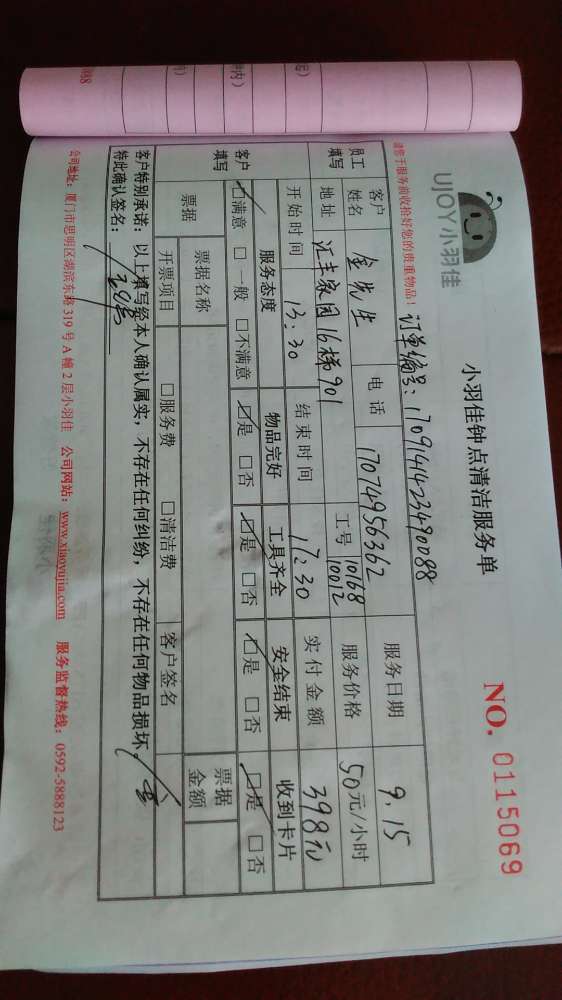 UJOY小羽佳
小羽佳钟点清洁服务单
NO. 0115069
请您于服务前收捡好您的贵重物品！
订单编号：1709141423490088
员工填写
客户姓名 金先生 电话 17074956362 服务日期 9.15
地址 汇丰家园16梯901 工号 10168 10012 服务价格 50元/小时
开始时间 13：30 结束时间 17：30 实付金额 398元
客户填写
服务态度 物品完好 工具齐全 安全结束 收到卡片
☑满意 □一般 □不满意 ☑是 □否 ☑是 □否 ☑是 □否 ☑是 □否
票据 票据名称 票据金额
开票项目 □服务费 □清洁费 客户签名
客户特别承诺：以上填写经本人确认属实，不存在任何纠纷，不存在任何物品损坏。
特此确认签名：
公司地址：厦门市思明区湖滨东路319号A幢2层小羽佳 公司网站：www.xiaoyujia.com 服务监督热线：0592-5888123